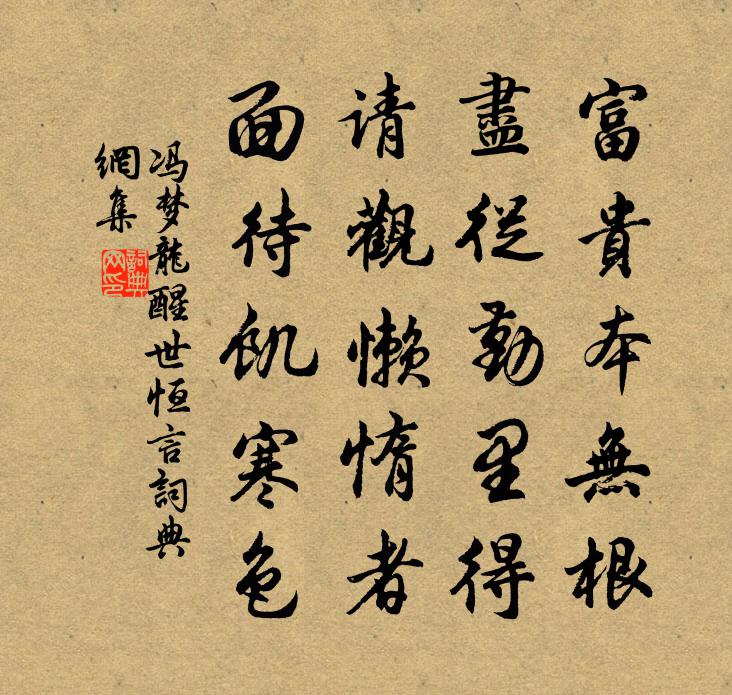 富貴本無根
盡從勤里得
请觀懒惰者
面待飢寒色
冯梦龍醒世恒言詞典
網集
詞典
网印